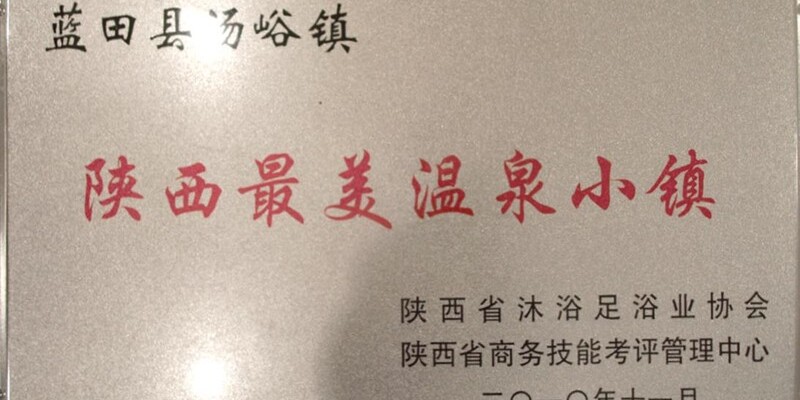 蓝田县汤峪镇
陕西最美温泉小镇
陕西省沐浴足浴业协会
陕西省商务技能考评管理中心
二〇一〇年十一月